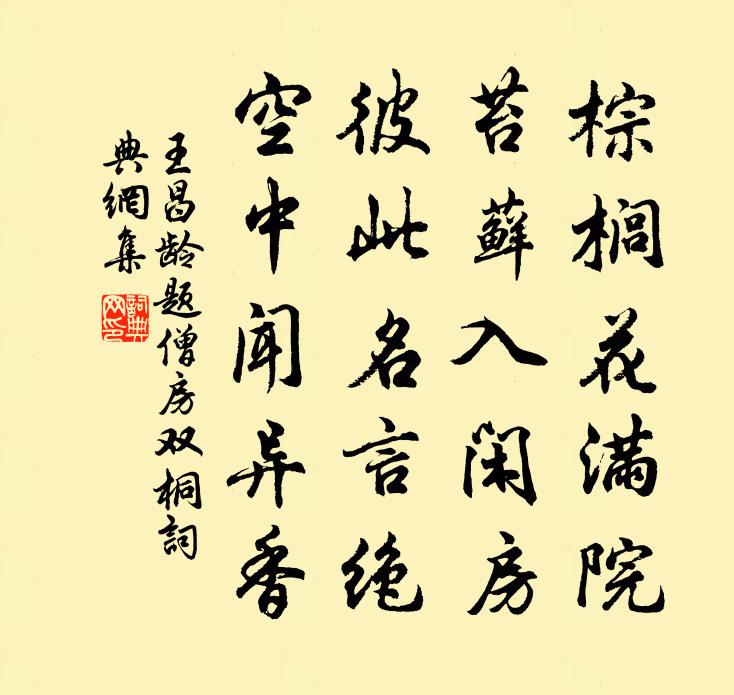 棕榈花满院
苔藓入闲房
彼此名言绝
空中闻异香
王昌龄题僧房双桐詞
典網集
詞典網印